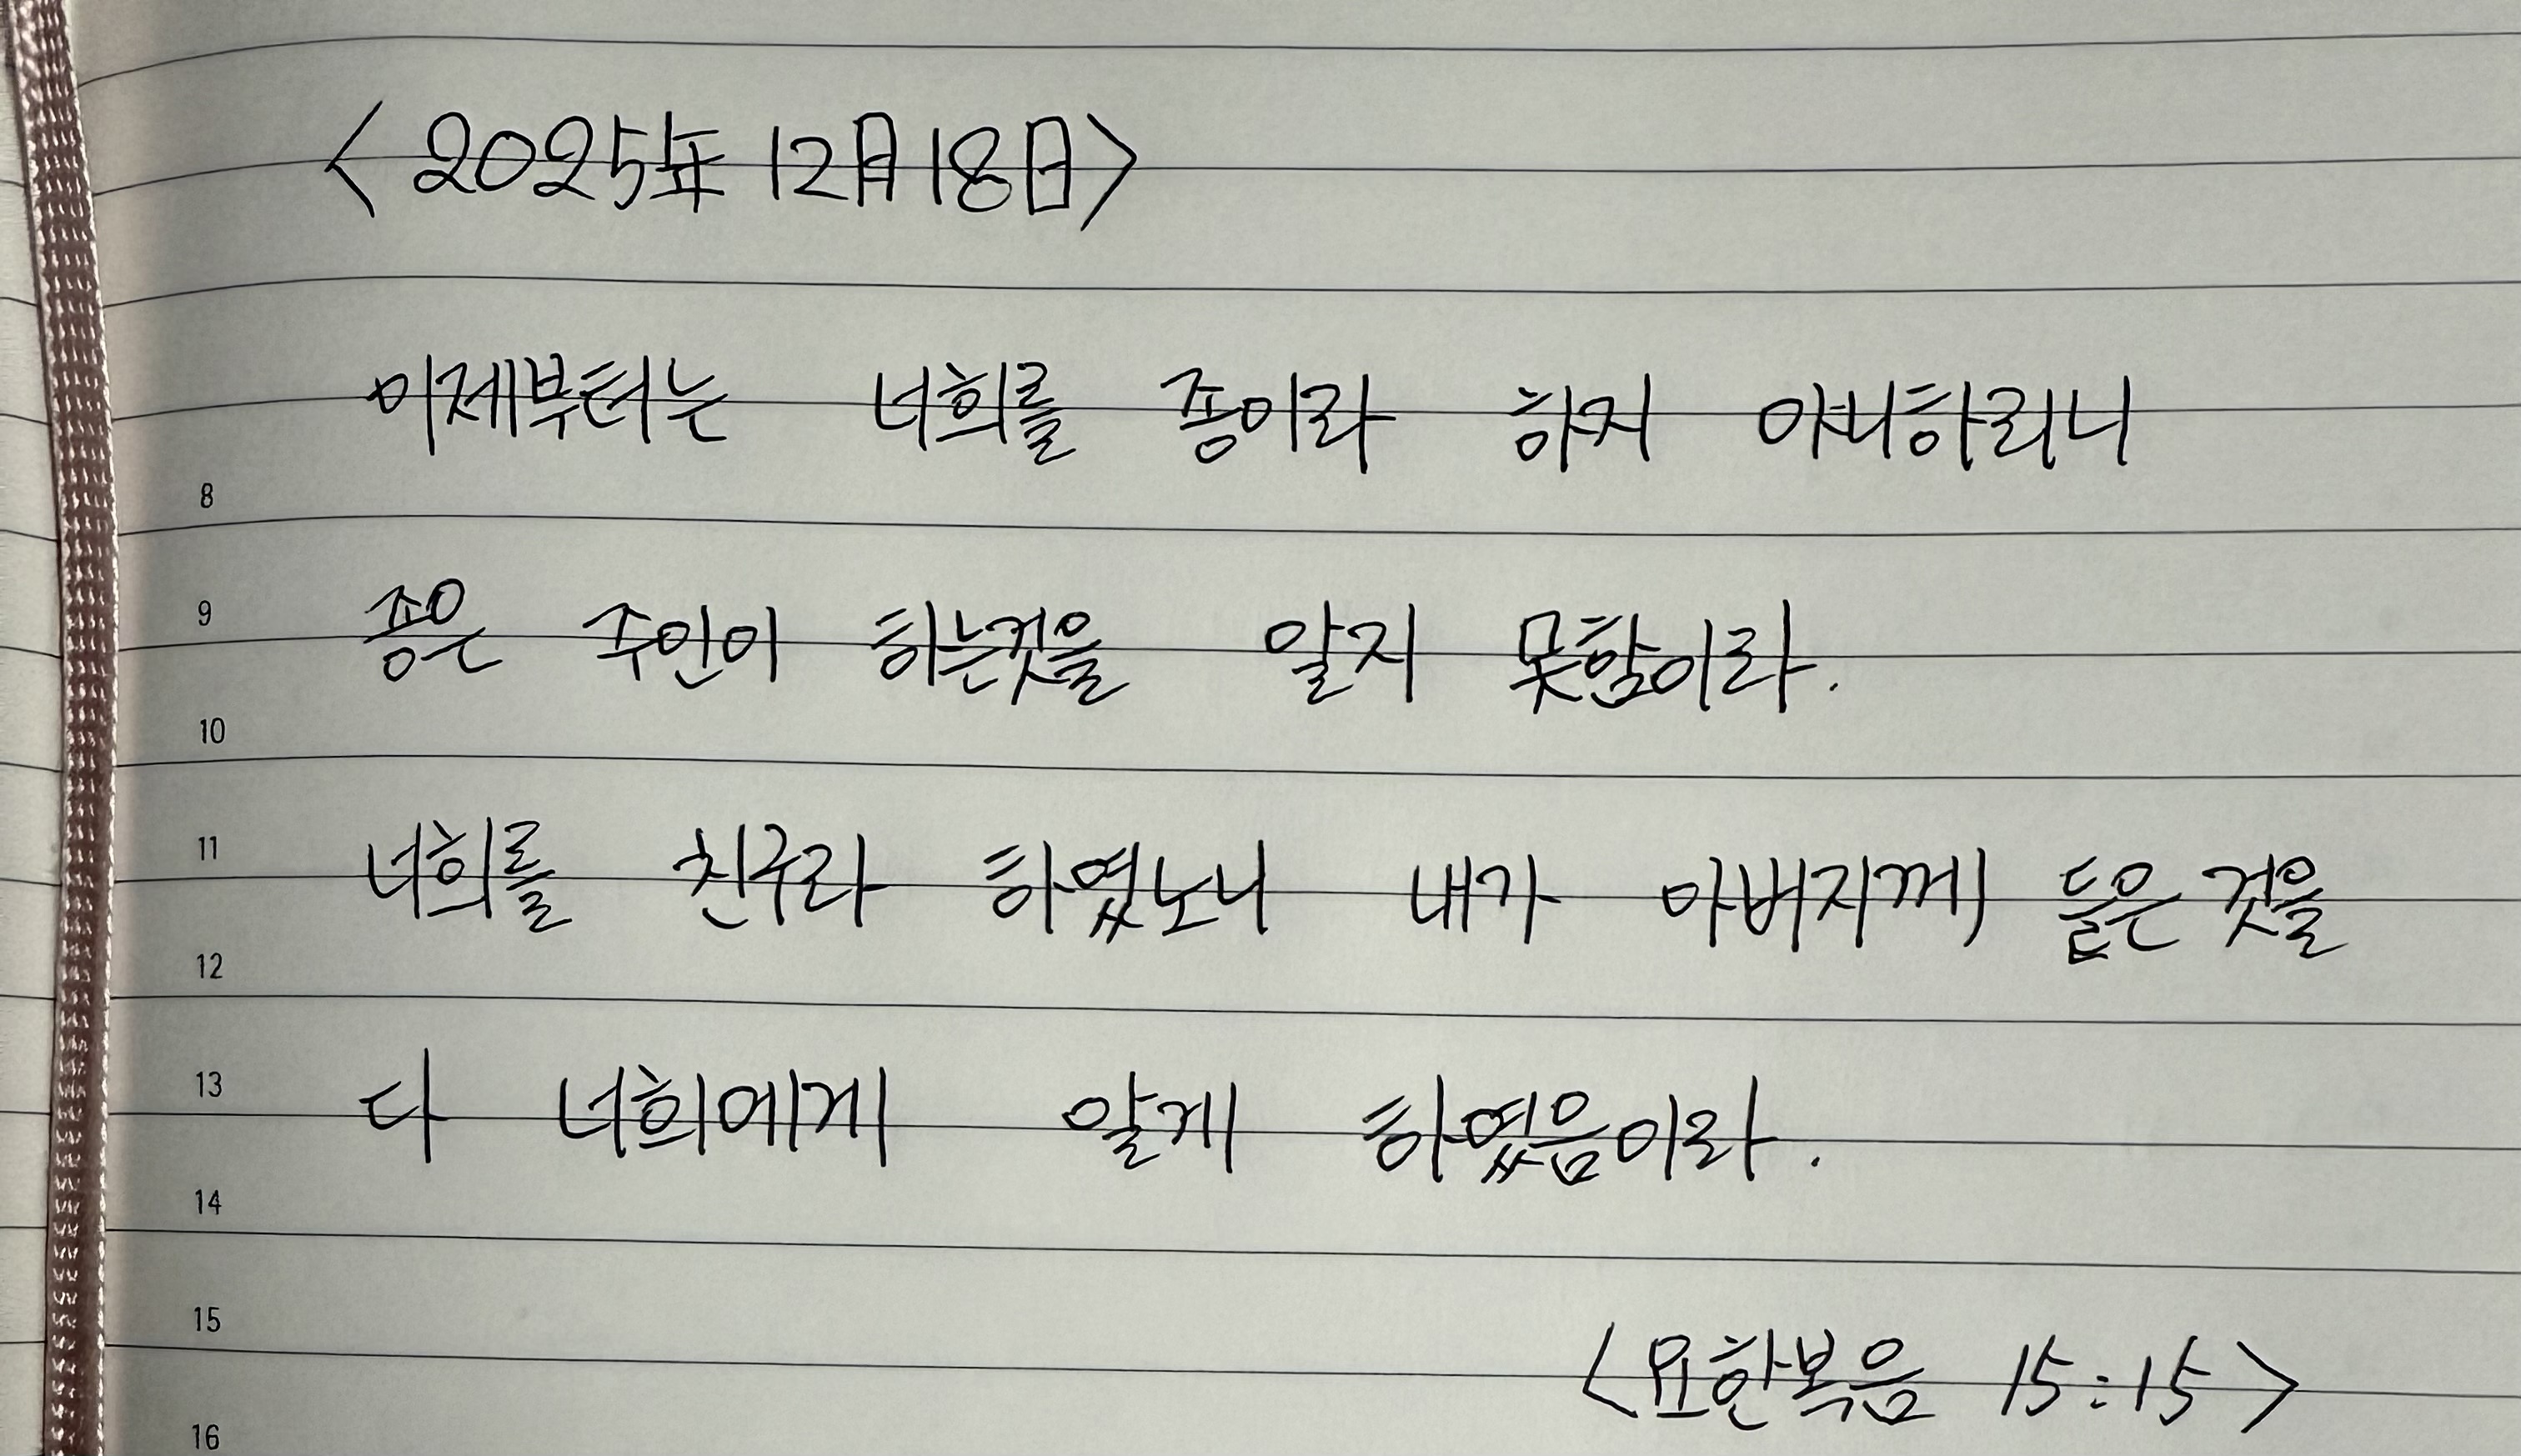 <2025年 12月 18日>
이제부터는 너희를 종이라 하지 아니하리니
8
9 종은 주인이 하는것을 알지 못함이라.
10
11 너희를 친구라 하였노니 내가 아버지께 듣은 것을
12
13 다 너희에게 알게 하였음이라.
14
15 <요한복음 15:15>
16